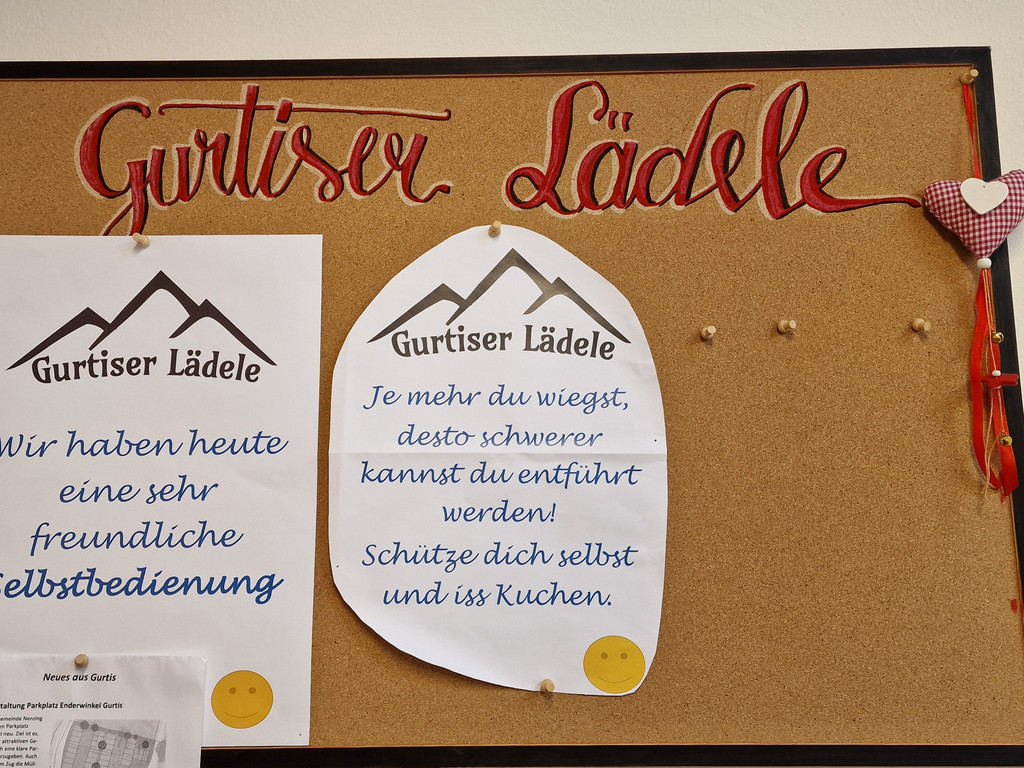 Gurtiser Lädele
Gurtiser Lädele
Wir haben heute
eine sehr
freundliche
Selbstbedienung
Gurtiser Lädele
Je mehr du wiegst,
desto schwerer
kannst du entführt
werden!
Schütze dich selbst
und iss Kuchen.
Neues aus Gurtis
taltung Parkplatz Enderwinkel Gurtis
emeinde Nenzing
en Parkplatz
el neu. Ziel ist es,
attraktiven Ge-
h eine klare Par-
rzugeben. Auch
m Zug die Müll-